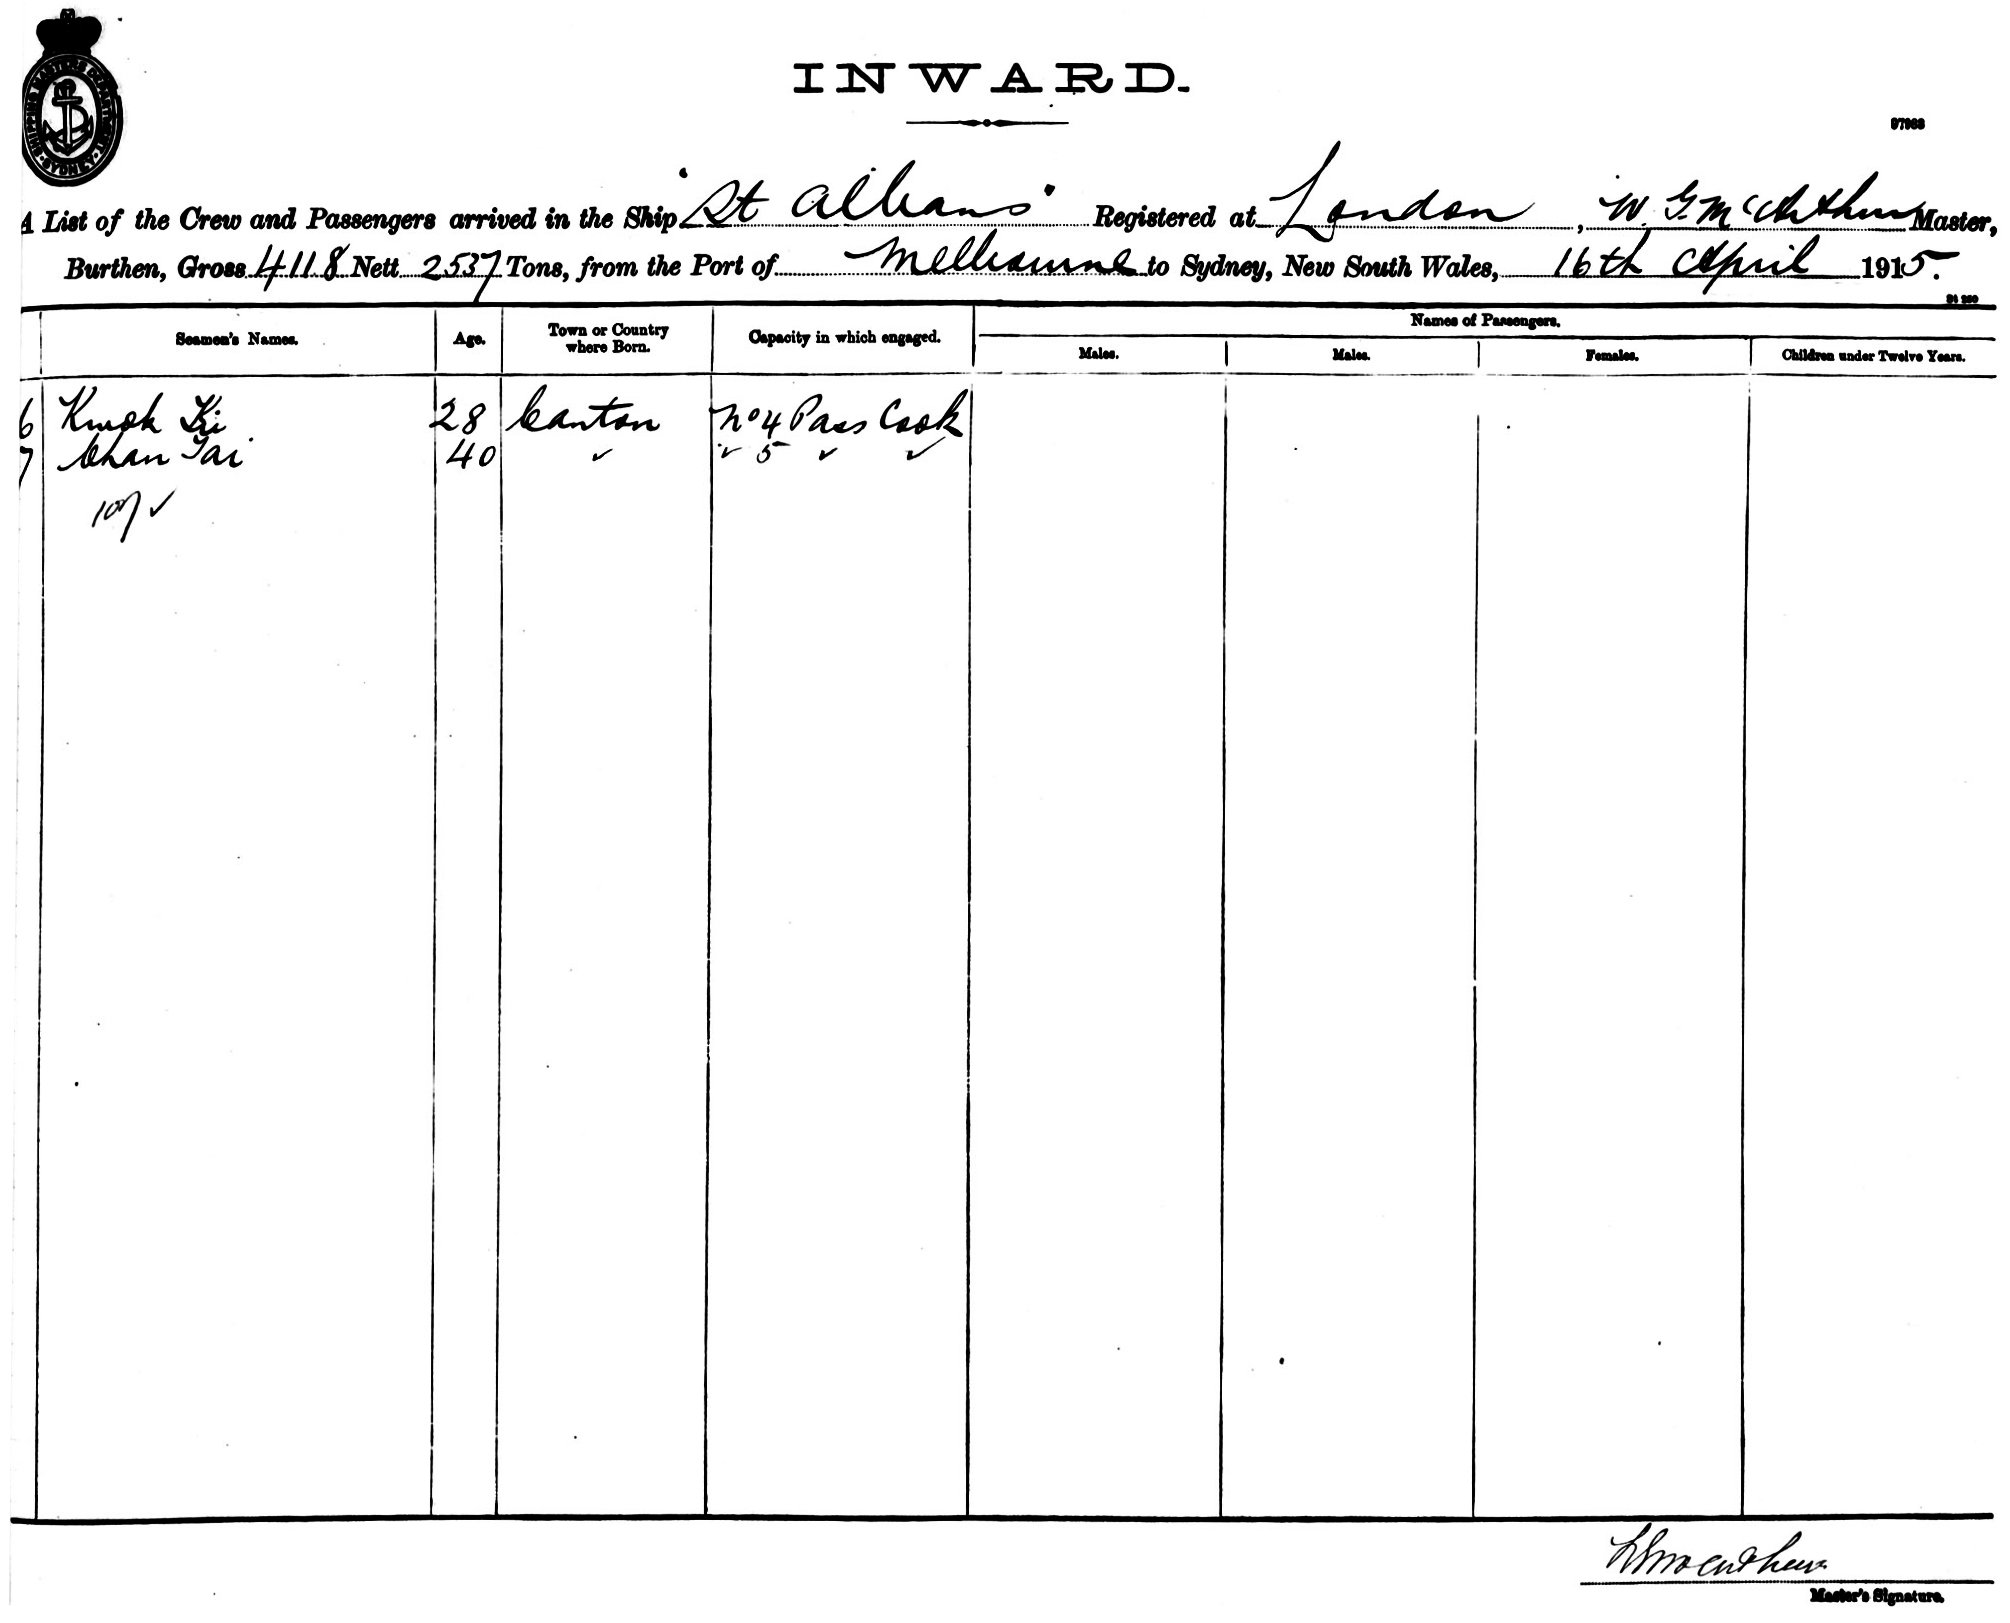 SHIPPING MASTERS DEPARTMENT SYDNEY
INWARD.
97963
A List of the Crew and Passengers arrived in the Ship "St Albans" Registered at London, W. G. McArthur Master,
Burthen, Gross 4118 Nett 2537 Tons, from the Port of Melbourne to Sydney, New South Wales, 16th April 1915.
Seamen's Names. Age. Town or Country where Born. Capacity in which engaged. Names of Passengers.
Males. Males. Females. Children under Twelve Years.
6 Kwok Ki 28 Canton No 4 Pass Cook
7 Chan Tai 40 " " 5 " "
107 ✓
Master's Signature.